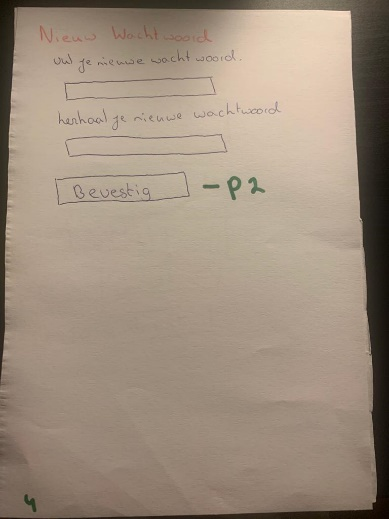 Nieuw Wachtwoord
Vul je nieuwe wachtwoord.
herhaal je nieuwe wachtwoord
Bevestig - P2
4